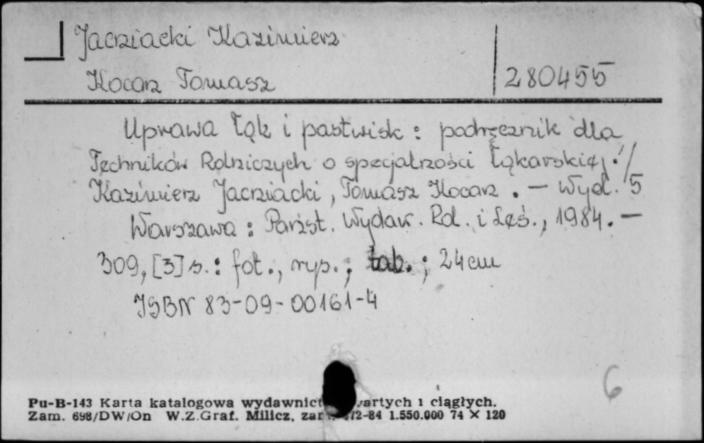 Jacziacki Kazimierz
Kocarz Tomasz
280455
Uprawa łąk i pastwisk : podręcznik dla
Techników Rolniczych o specjalności łąkarskiej :/
Kazimierz Jacziacki, Tomasz Kocarz . — Wyd. 5
Warszawa : Państ. Wydaw. Rol. i Leś., 1984. —
309, [3] s. : fot., rys. ; tab. ; 24 cm
ISBN 83-09-00161-4
6
Pu-B-143 Karta katalogowa wydawnict artych i ciągłych.
Zam. 698/DW/On W.Z.Graf. Milicz, zam 72-84 1.550.000 74 × 120